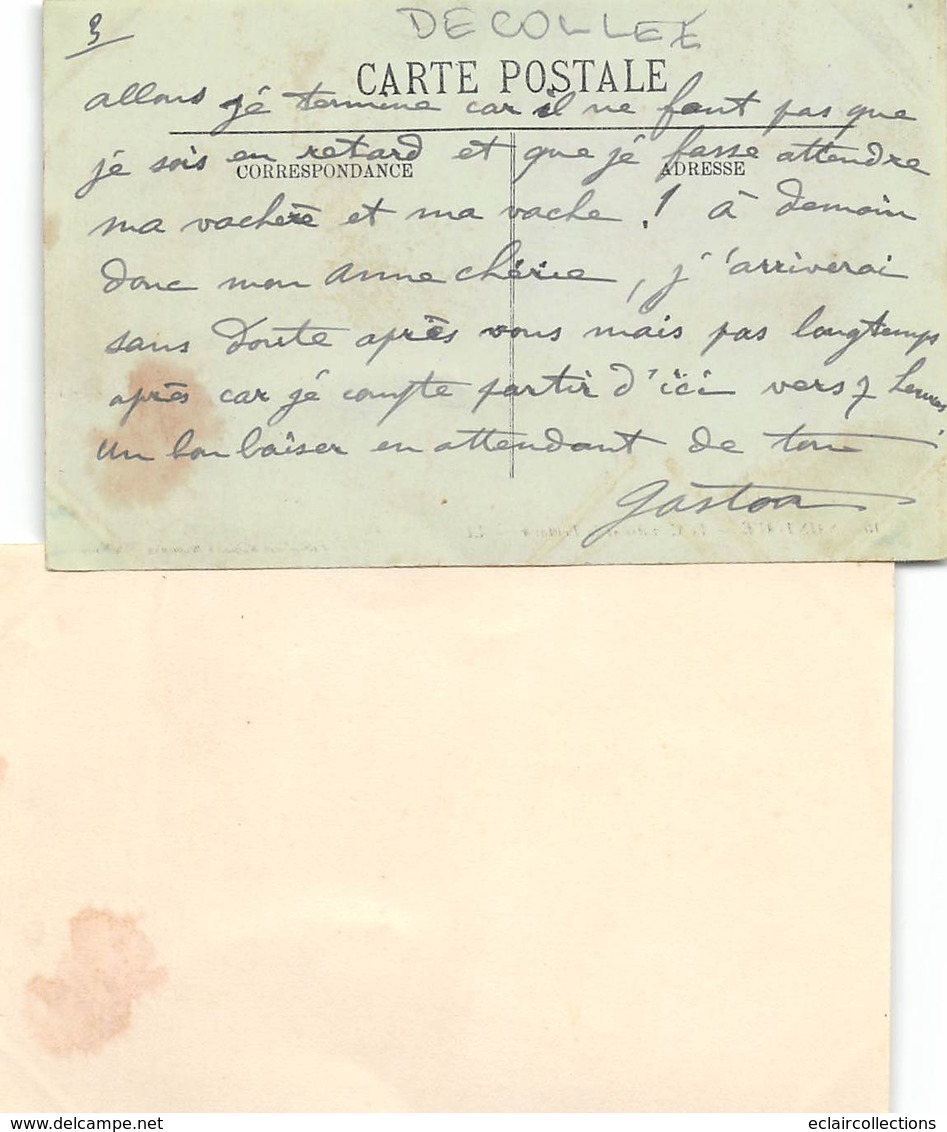 3
DECOLLEE
CARTE POSTALE
allons je termine car il ne faut pas que
je sois en retard et que je fasse attendre
CORRESPONDANCE
ADRESSE
ma vachère et ma vache ! à demain
donc mon Anne chérie, j'arriverai
sans doute après vous mais pas longtemps
après car je compte partir d'ici vers 7 heures.
un bon baiser en attendant de ton
Gaston
www.delcampe.net
eclaircollections